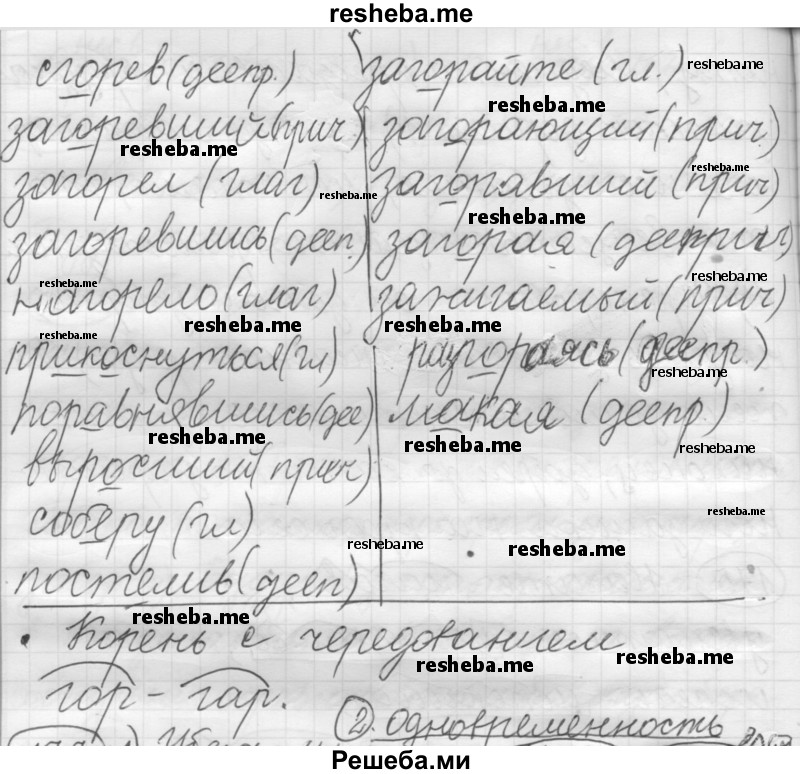 resheba.me
сгорев (деепр.) загорайте (гл.) resheba.me
resheba.me
загоревший (прич) загорающий (прич.)
resheba.me
resheba.me
загорел (глаг) загоравший (прич)
resheba.me
resheba.me
загоревшись (дееп.) загорая (дееприч)
resheba.me resheba.me
нагорело (глаг) зажигаемый (прич)
resheba.me resheba.me
resheba.me
прикоснуться (гл) разгораясь (деепр.)
resheba.me
поравнявшись (дее) макая (деепр.)
resheba.me resheba.me resheba.me
выросший (прич)
соберу (гл) resheba.me
resheba.me resheba.me
постелив (дееп)
resheba.me
• Корень с чередованием
resheba.me resheba.me
гор - гар.
2. одновременность
Решеба.ми